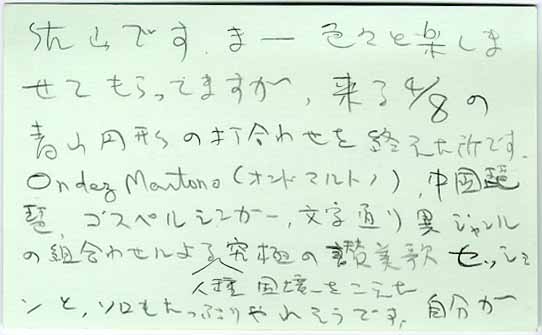 です。まー色々と楽しま
せてもらってますが、来る4/8の
青山円形の打合わせを終えた所です。
Ondez Martono (オンドマルトノ)、中国琵
琶、ゴスペルシンガー、文字通り異ジャンル
の組合わせによる究極の讃美歌セッショ
人種国境をこえた
ンと、ソロもたっぷりやれそうです。自分が